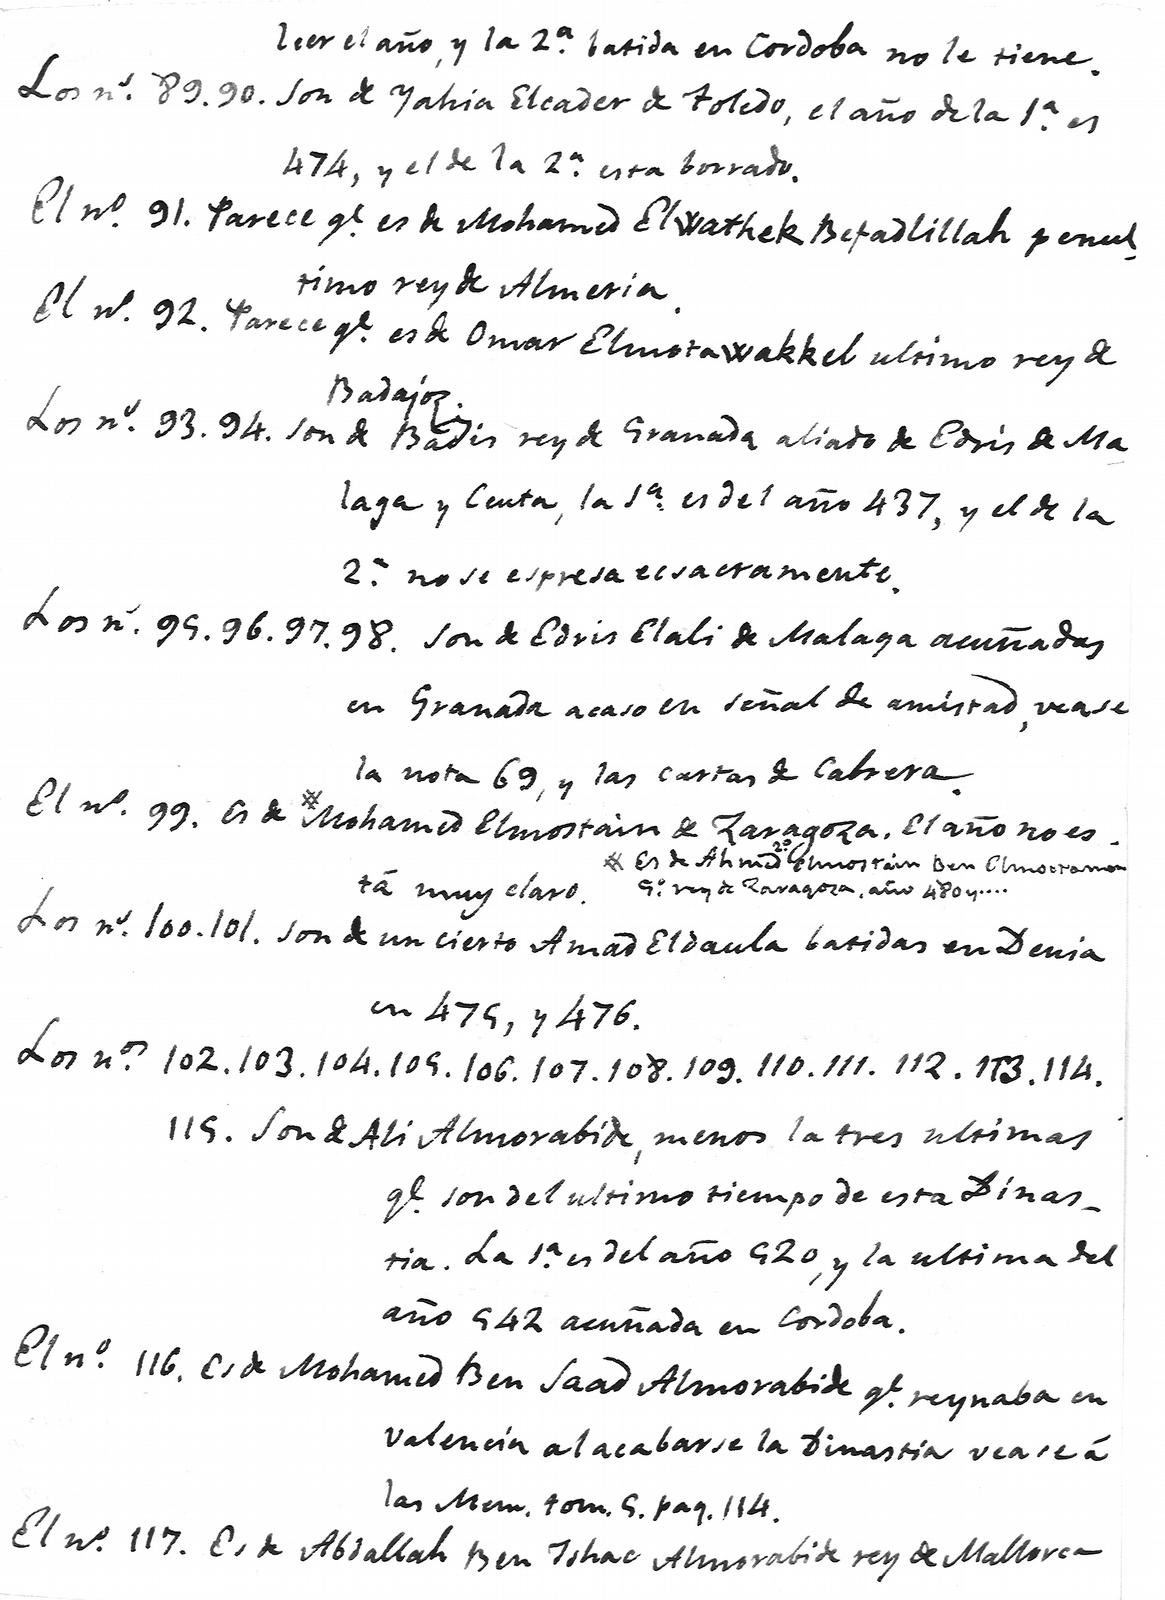 leer el año, y la 2.ª batida en Cordoba no le tiene.
Los n.s 89.90. Son de Yahia Elcader de Toledo, el año de la 1.ª es
474, y el de la 2.ª esta borrado.
El n.º 91. Parece q.e es de Mohamed Elwathek Befadlillah penul-
timo rey de Almeria.
El n.º 92. Parece q.e es de Omar Elmotawakkel ultimo rey de
Badajoz.
Los n.s 93.94. Son de Badis rey de Granada aliado de Edris de Ma
laga y Ceuta, la 1.ª es del año 437, y el de la
2.ª no se espresa ecsactamente.
Los n.s 95.96.97.98. Son de Edris Elali de Malaga acuñadas
en Granada acaso en señal de amistad, vease
la nota 69, y las cartas de Cabrera.
El n.º 99. Es de # Mohamed Elmostain de Zaragoza. El año no es-
# Es de Ahmed 2º Elmostain Ben Elmoctamen
tá muy claro. 5.º rey de Zaragoza, año 480 y....
Los n.s 100.101. Son de un cierto Amad Eldaula batidas en Denia
en 475, y 476.
Los n.os 102.103.104.105.106.107.108.109.110.111.112.113.114.
115. Son de Ali Almorabide, menos la tres ultimas
q.e son del ultimo tiempo de esta Dinas-
tia. La 1.ª es del año 520, y la ultima del
año 542 acuñada en Cordoba.
El n.º 116. Es de Mohamed Ben Saad Almorabide q.e reynaba en
Valencia al acabarse la Dinastia vease á
las Mem. tom. 5. pag. 114.
El n.º 117. Es de Abdallah Ben Ishac Almorabide rey de Mallorca